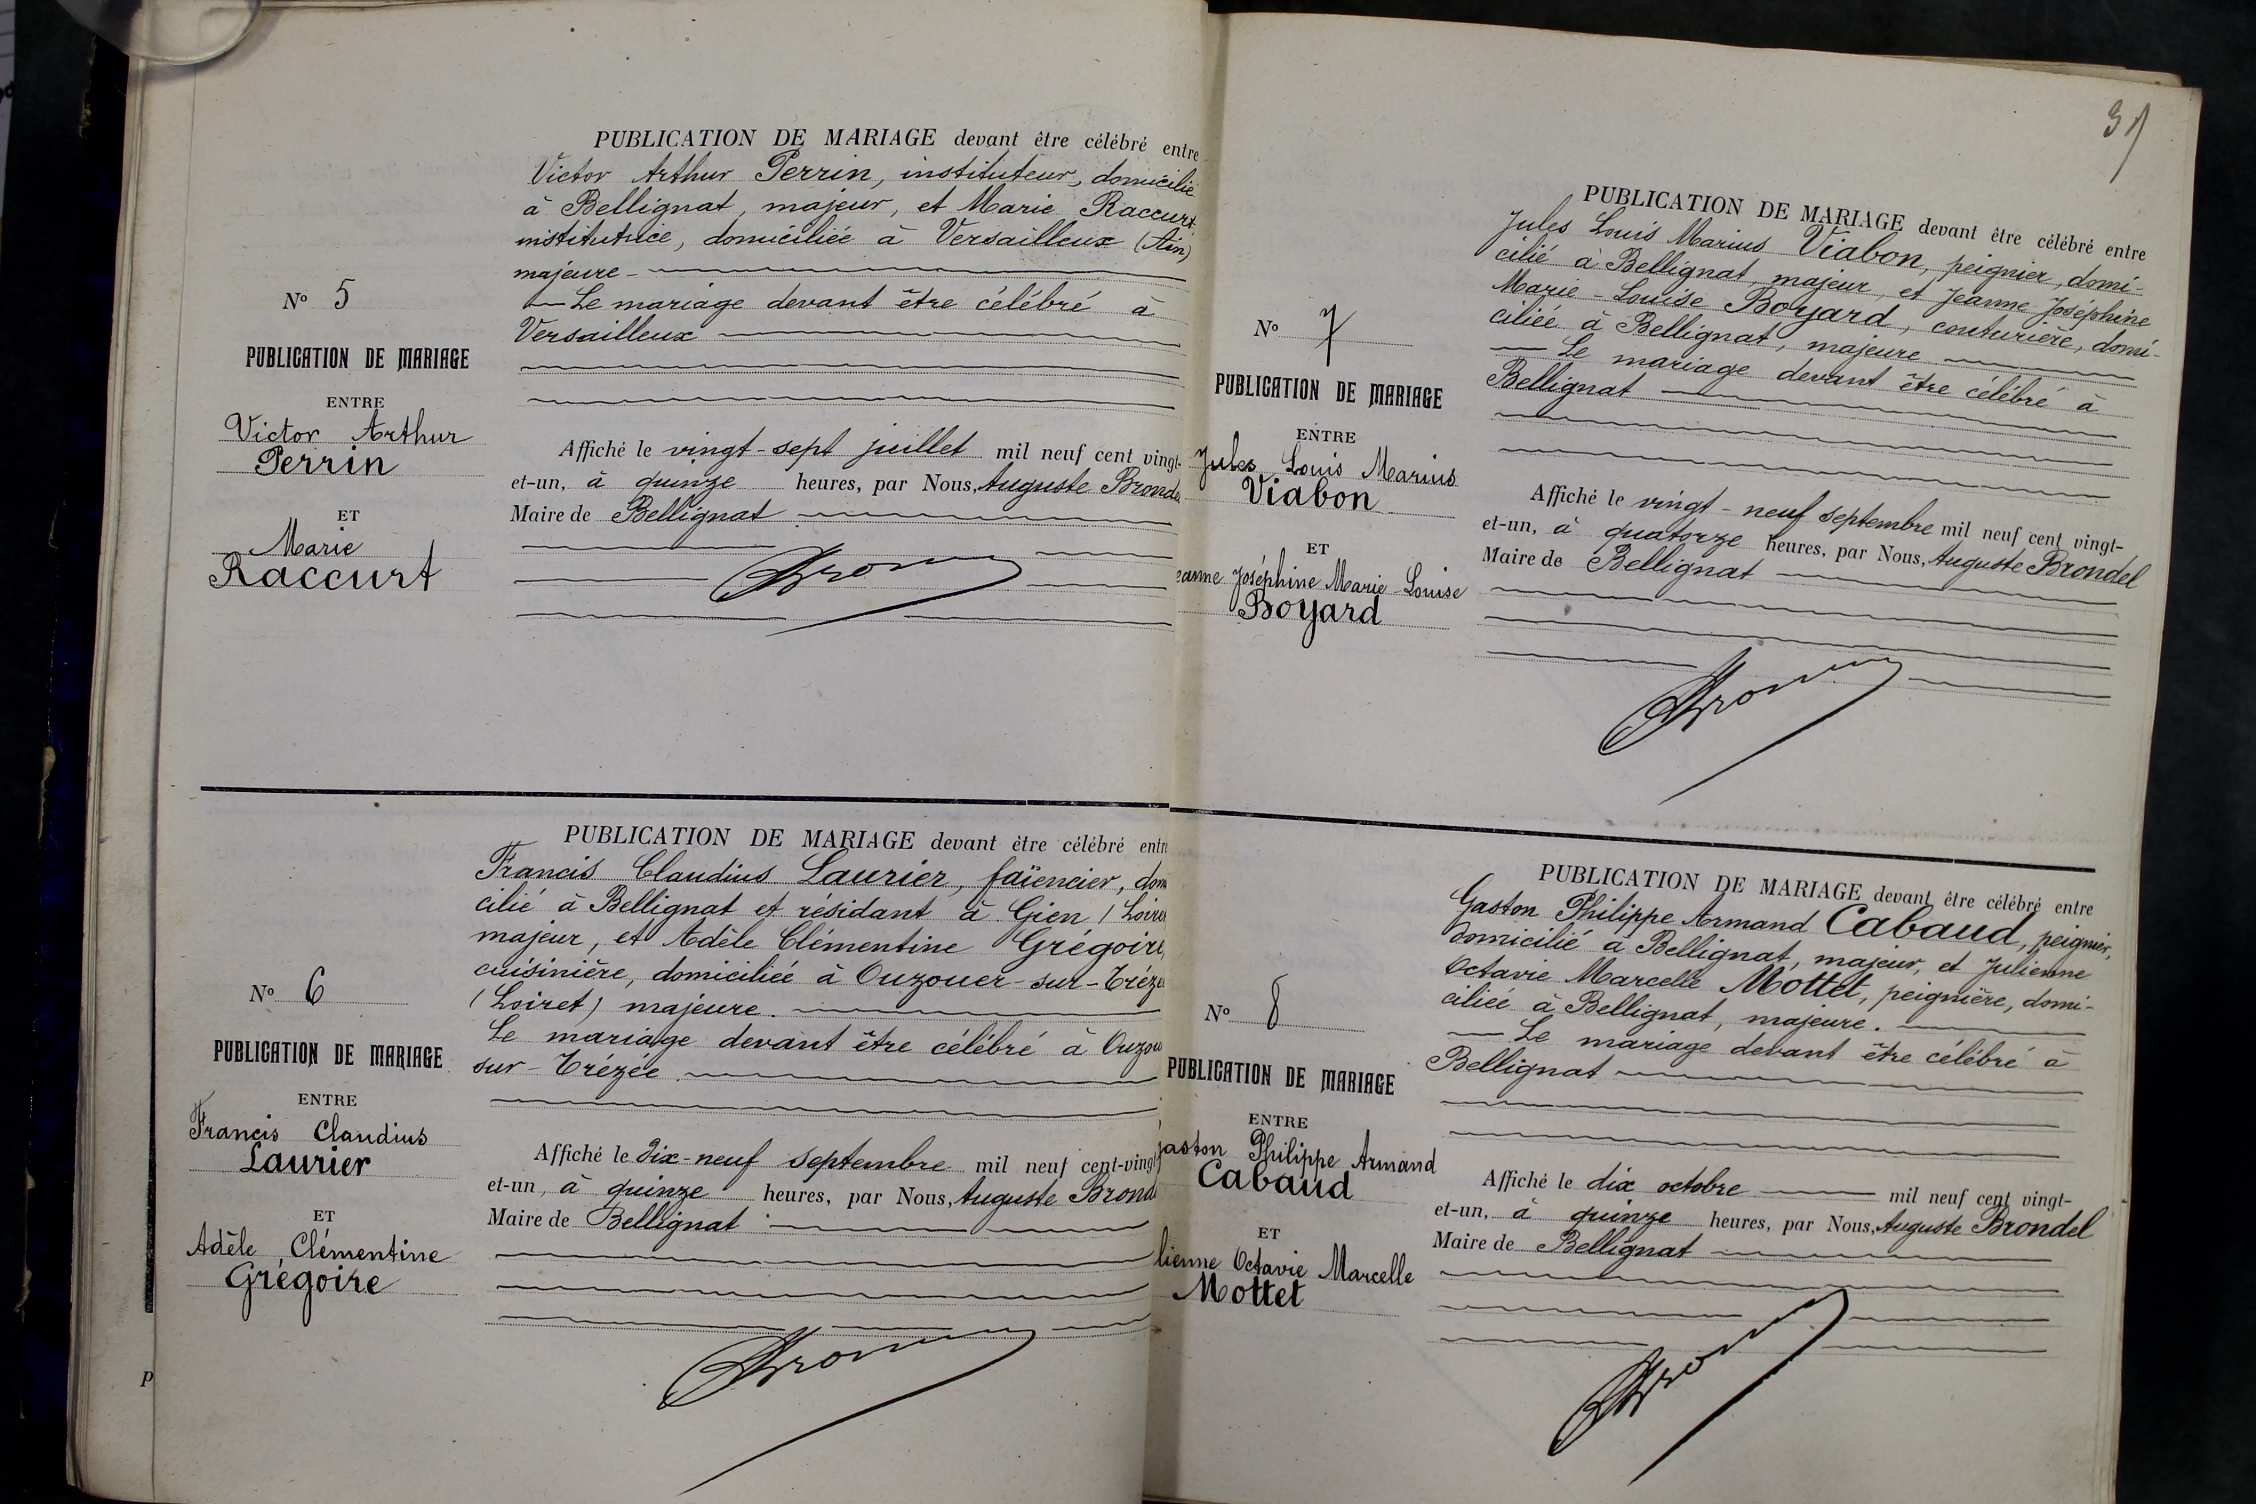 N° 5
PUBLICATION DE MARIAGE
ENTRE
Victor Arthur
Perrin
ET
Marie
Raccurt
PUBLICATION DE MARIAGE devant être célébré entre
Victor Arthur Perrin, instituteur, domicilié
à Bellignat, majeur, et Marie Raccurt,
institutrice, domiciliée à Versailleux (Ain)
majeure
Le mariage devant être célébré à
Versailleux
Affiché le vingt-sept juillet mil neuf cent vingt-
et-un, à quinze heures, par Nous, Auguste Bronde
Maire de Bellignat
N° 6
PUBLICATION DE MARIAGE
ENTRE
Francis Claudius
Laurier
ET
Adèle Clémentine
Grégoire
PUBLICATION DE MARIAGE devant être célébré entr
Francis Claudius Laurier, faïencier, dom
cilié à Bellignat et résidant à Gien (Loire
majeur, et Adèle Clémentine Grégoire,
cuisinière, domiciliée à Ouzouer-sur-Tréze
(Loiret) majeure.
Le mariage devant être célébré à Ouzou
sur-Trézée.
Affiché le dix-neuf septembre mil neuf cent-vingt
et-un, à quinze heures, par Nous, Auguste Bronde
Maire de Bellignat
p
37
N° 7
PUBLICATION DE MARIAGE
ENTRE
Jules Louis Marius
Viabon
ET
eanne Joséphine Marie-Louise
Boyard
PUBLICATION DE MARIAGE devant être célébré entre
Jules Louis Marius Viabon, peignier, domi-
cilié à Bellignat, majeur, et Jeanne Joséphine
Marie-Louise Boyard, couturière, domi-
ciliée à Bellignat, majeure
Le mariage devant être célébré à
Bellignat
Affiché le vingt-neuf septembre mil neuf cent vingt-
et-un, à quatorze heures, par Nous, Auguste Brondel
Maire de Bellignat
N° 8
PUBLICATION DE MARIAGE
ENTRE
Gaston Philippe Armand
Cabaud
ET
lienne Octavie Marcelle
Mottet
PUBLICATION DE MARIAGE devant être célébré entre
Gaston Philippe Armand Cabaud, peignier,
domicilié à Bellignat, majeur, et Julienne
Octavie Marcelle Mottet, peignière, domi-
ciliée à Bellignat, majeure.
Le mariage devant être célébré à
Bellignat
Affiché le dix octobre mil neuf cent vingt-
et-un, à quinze heures, par Nous, Auguste Brondel
Maire de Bellignat